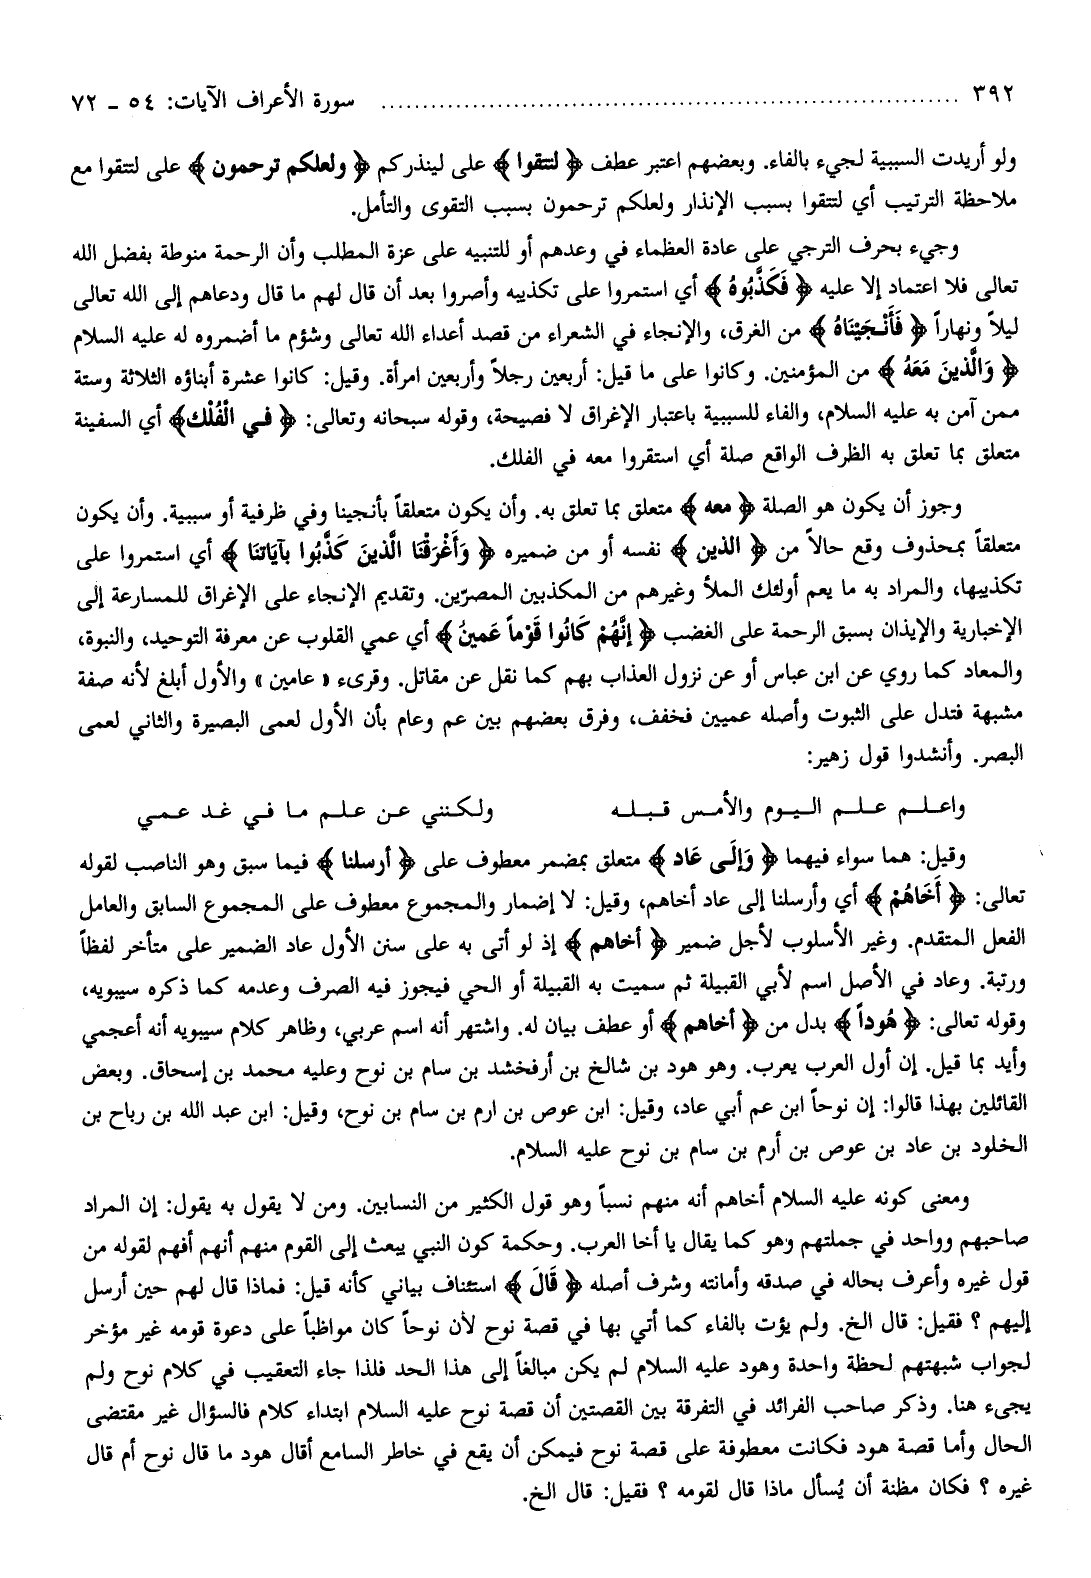 ٣٩٢ ........................................................ سورة الأعراف الآيات: ٥٤ ـ ٧٢
ولو أريدت السببية لجيء بالفاء. وبعضهم اعتبر عطف ﴿ لتتقوا ﴾ على لينذركم ﴿ ولعلكم ترحمون ﴾ على لتتقوا مع
ملاحظة الترتيب أي لتتقوا بسبب الإنذار ولعلكم ترحمون بسبب التقوى والتأمل.
وجيء بحرف الترجي على عادة العظماء في وعدهم أو للتنبيه على عزة المطلب وأن الرحمة منوطة بفضل الله
تعالى فلا اعتماد إلا عليه ﴿ فَكَذَّبُوهُ ﴾ أي استمروا على تكذيبه وأصروا بعد أن قال لهم ما قال ودعاهم إلى الله تعالى
ليلاً ونهاراً ﴿ فَأَنْجَيْنَاهُ ﴾ من الغرق، والإنجاء في الشعراء من قصد أعداء الله تعالى وشؤم ما أضمروه له عليه السلام
﴿ وَالَّذينَ مَعَهُ ﴾ من المؤمنين. وكانوا على ما قيل: أربعين رجلاً وأربعين امرأة. وقيل: كانوا عشرة أبناؤه الثلاثة وستة
ممن آمن به عليه السلام، والفاء للسببية باعتبار الإغراق لا فصيحة، وقوله سبحانه وتعالى: ﴿ في الْفُلْك﴾ أي السفينة
متعلق بما تعلق به الظرف الواقع صلة أي استقروا معه في الفلك.
وجوز أن يكون هو الصلة ﴿ معه ﴾ متعلق بما تعلق به. وأن يكون متعلقاً بأنجينا وفي ظرفية أو سببية. وأن يكون
متعلقاً بمحذوف وقع حالاً من ﴿ الذين ﴾ نفسه أو من ضميره ﴿ وَأَغْرَقْنَا الَّذينَ كَذَّبُوا بآيَاتنَا ﴾ أي استمروا على
تكذيبها، والمراد به ما يعم أولئك الملأ وغيرهم من المكذبين المصرّين. وتقديم الإنجاء على الإغراق للمسارعة إلى
الإخبارية والإيذان بسبق الرحمة على الغضب ﴿ إنَّهُمْ كَانُوا قَوْماً عَمينُ ﴾ أي عمي القلوب عن معرفة التوحيد، والنبوة،
والمعاد كما روي عن ابن عباس أو عن نزول العذاب بهم كما نقل عن مقاتل. وقرىء « عامين » والأول أبلغ لأنه صفة
مشبهة فتدل على الثبوت وأصله عميين فخفف، وفرق بعضهم بين عم وعام بأن الأول لعمى البصيرة والثاني لعمى
البصر. وأنشدوا قول زهير:
واعلم علم اليوم والأمس قبله ولكنني عن علم ما في غد عمي
وقيل: هما سواء فيهما ﴿ وَإلَى عَاد ﴾ متعلق بمضمر معطوف على ﴿ أرسلنا ﴾ فيما سبق وهو الناصب لقوله
تعالى: ﴿ أَخَاهُمْ ﴾ أي وأرسلنا إلى عاد أخاهم، وقيل: لا إضمار والمجموع معطوف على المجموع السابق والعامل
الفعل المتقدم. وغير الأسلوب لأجل ضمير ﴿ أخاهم ﴾ إذ لو أتى به على سنن الأول عاد الضمير على متأخر لفظاً
ورتبة. وعاد في الأصل اسم لأبي القبيلة ثم سميت به القبيلة أو الحي فيجوز فيه الصرف وعدمه كما ذكره سيبويه،
وقوله تعالى: ﴿ هُوداً ﴾ بدل من ﴿ أخاهم ﴾ أو عطف بيان له. واشتهر أنه اسم عربي، وظاهر كلام سيبويه أنه أعجمي
وأيد بما قيل. إن أول العرب يعرب. وهو هود بن شالخ بن أرفخشد بن سام بن نوح وعليه محمد بن إسحاق. وبعض
القائلين بهذا قالوا: إن نوحاً ابن عم أبي عاد، وقيل: ابن عوص بن ارم بن سام بن نوح، وقيل: ابن عبد الله بن رباح بن
الخلود بن عاد بن عوص بن أرم بن سام بن نوح عليه السلام.
ومعنى كونه عليه السلام أخاهم أنه منهم نسباً وهو قول الكثير من النسابين. ومن لا يقول به يقول: إن المراد
صاحبهم وواحد في جملتهم وهو كما يقال يا أخا العرب. وحكمة كون النبي يبعث إلى القوم منهم أنهم أفهم لقوله من
قول غيره وأعرف بحاله في صدقه وأمانته وشرف أصله ﴿ قَالَ ﴾ استئناف بياني كأنه قيل: فماذا قال لهم حين أرسل
إليهم ؟ فقيل: قال الخ. ولم يؤت بالفاء كما أتي بها في قصة نوح لأن نوحاً كان مواظباً على دعوة قومه غير مؤخر
لجواب شبهتهم لحظة واحدة وهود عليه السلام لم يكن مبالغاً إلى هذا الحد فلذا جاء التعقيب في كلام نوح ولم
يجىء هنا. وذكر صاحب الفرائد في التفرقة بين القصتين أن قصة نوح عليه السلام ابتداء كلام فالسؤال غير مقتضى
الحال وأما قصة هود فكانت معطوفة على قصة نوح فيمكن أن يقع في خاطر السامع أقال هود ما قال نوح أم قال
غيره ؟ فكان مظنة أن يُسأل ماذا قال لقومه ؟ فقيل: قال الخ.